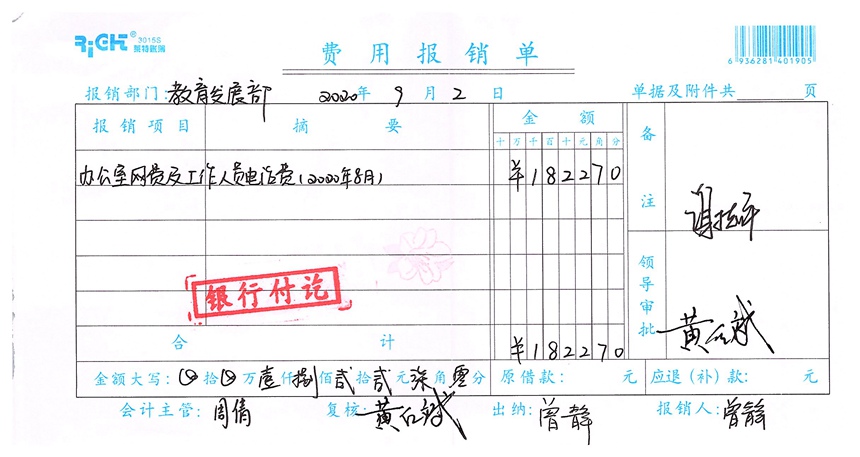 RiGHT 3015S
莱特账簿
费用报销单
6 936281 401905
报销部门:教育发展部 2020年 9月 2日 单据及附件共 页
报销项目 摘要 金额 备注
十万千百十元角分
办公室网费及工作人员电话费(2020年8月) ¥182270
银行付讫
领导审批 黄
合计 ¥182270
金额大写:⊗拾⊗万壹仟捌佰贰拾贰元柒角零分 原借款: 元 应退(补)款: 元
会计主管:周倩 复核:黄 出纳:曾静 报销人:曾静